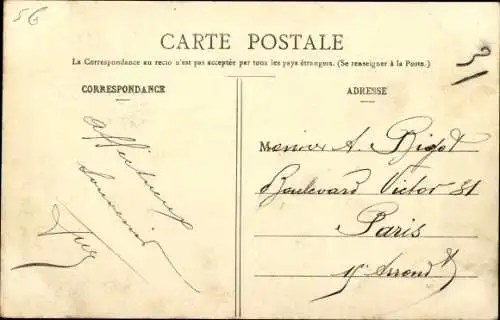 56
CARTE POSTALE
La Correspondance au recto n'est pas acceptée par tous les pays étrangers. (Se renseigner à la Poste.)
CORRESPONDANCE
Affectueux
Souvenir
ADRESSE
Monsieur A. Bigot
Boulevard Victor 81
Paris